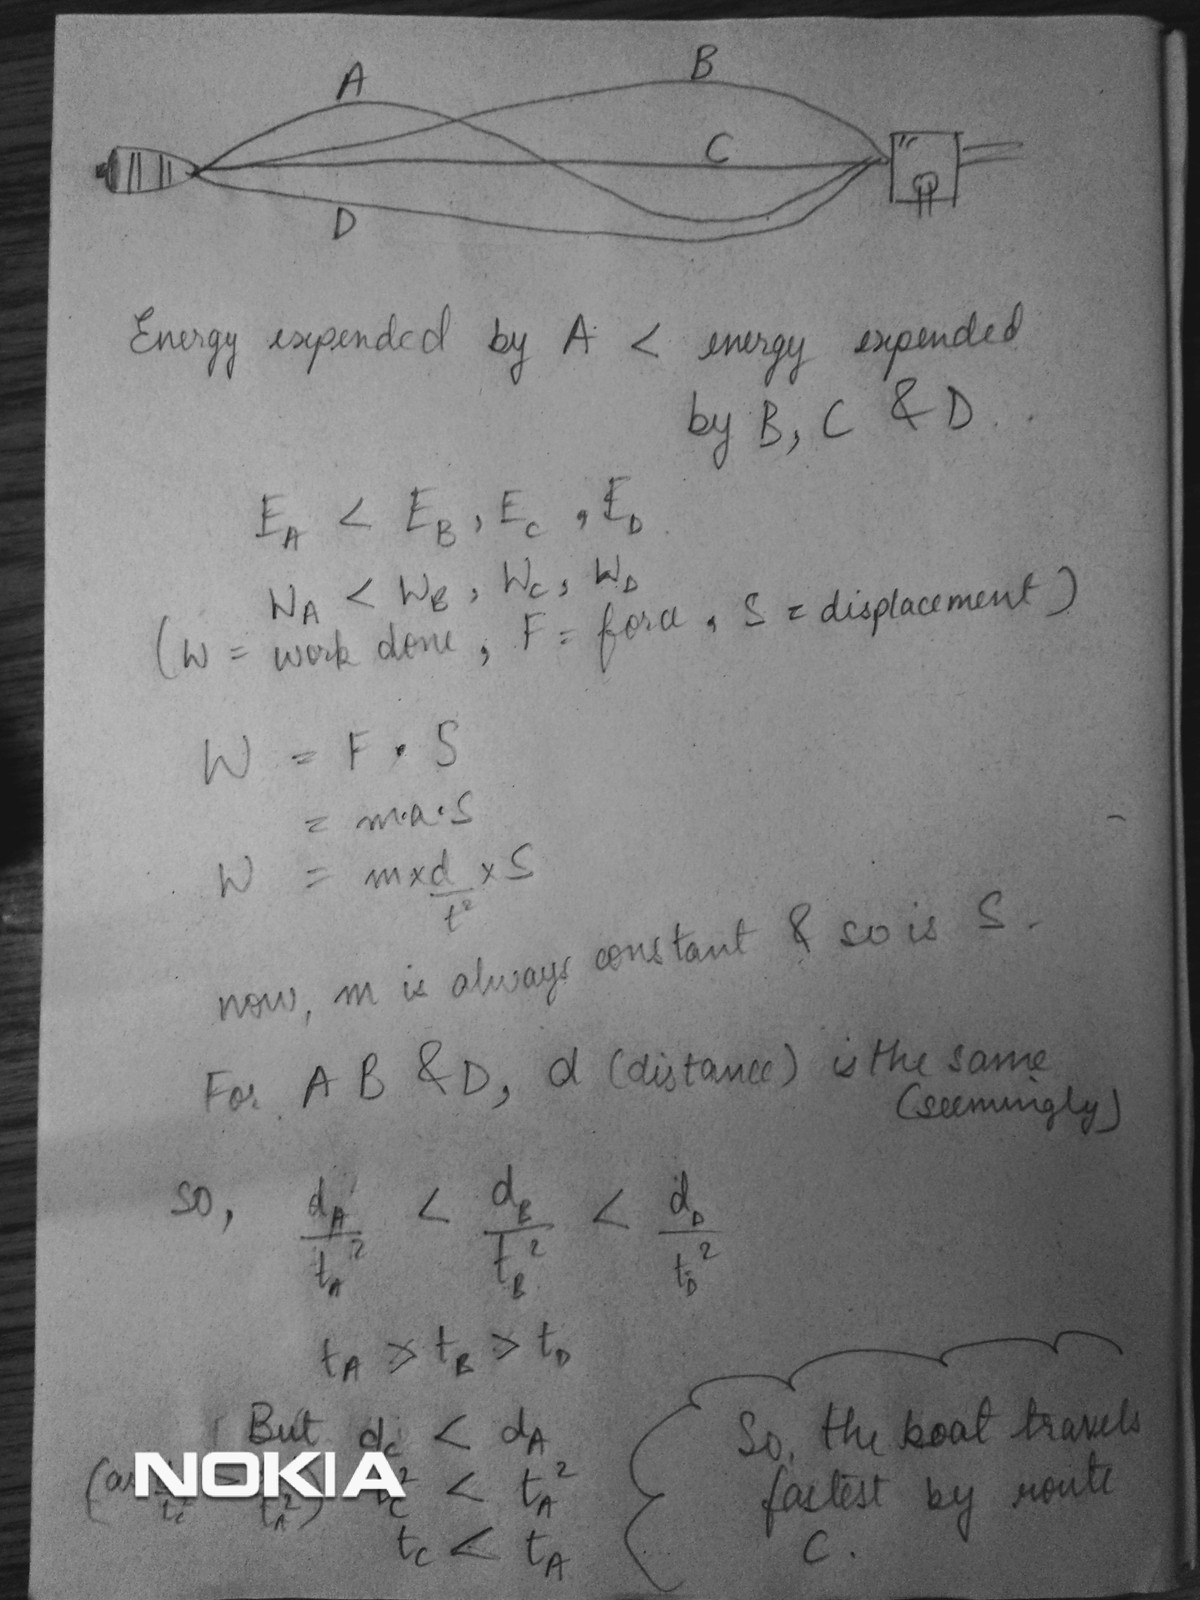 A
B
C
D
Energy expended by A < energy expended
by B, C & D ..
E_A < E_B, E_C, E_D
W_A < W_B, W_C, W_D
(W = work done, F = force, S = displacement)
W = F . S
= m.a.S
W = m × d/t² × S
now, m is always constant & so is S.
For A B & D, d (distance) is the same
(seemingly)
so, d_A/t_A² < d_B/t_B² < d_D/t_D²
t_A > t_B > t_D
But d_C < d_A
(as t_C² t_A²) t_C² < t_A²
t_C < t_A
So, the boat travels
fastest by route
C.
NOKIA